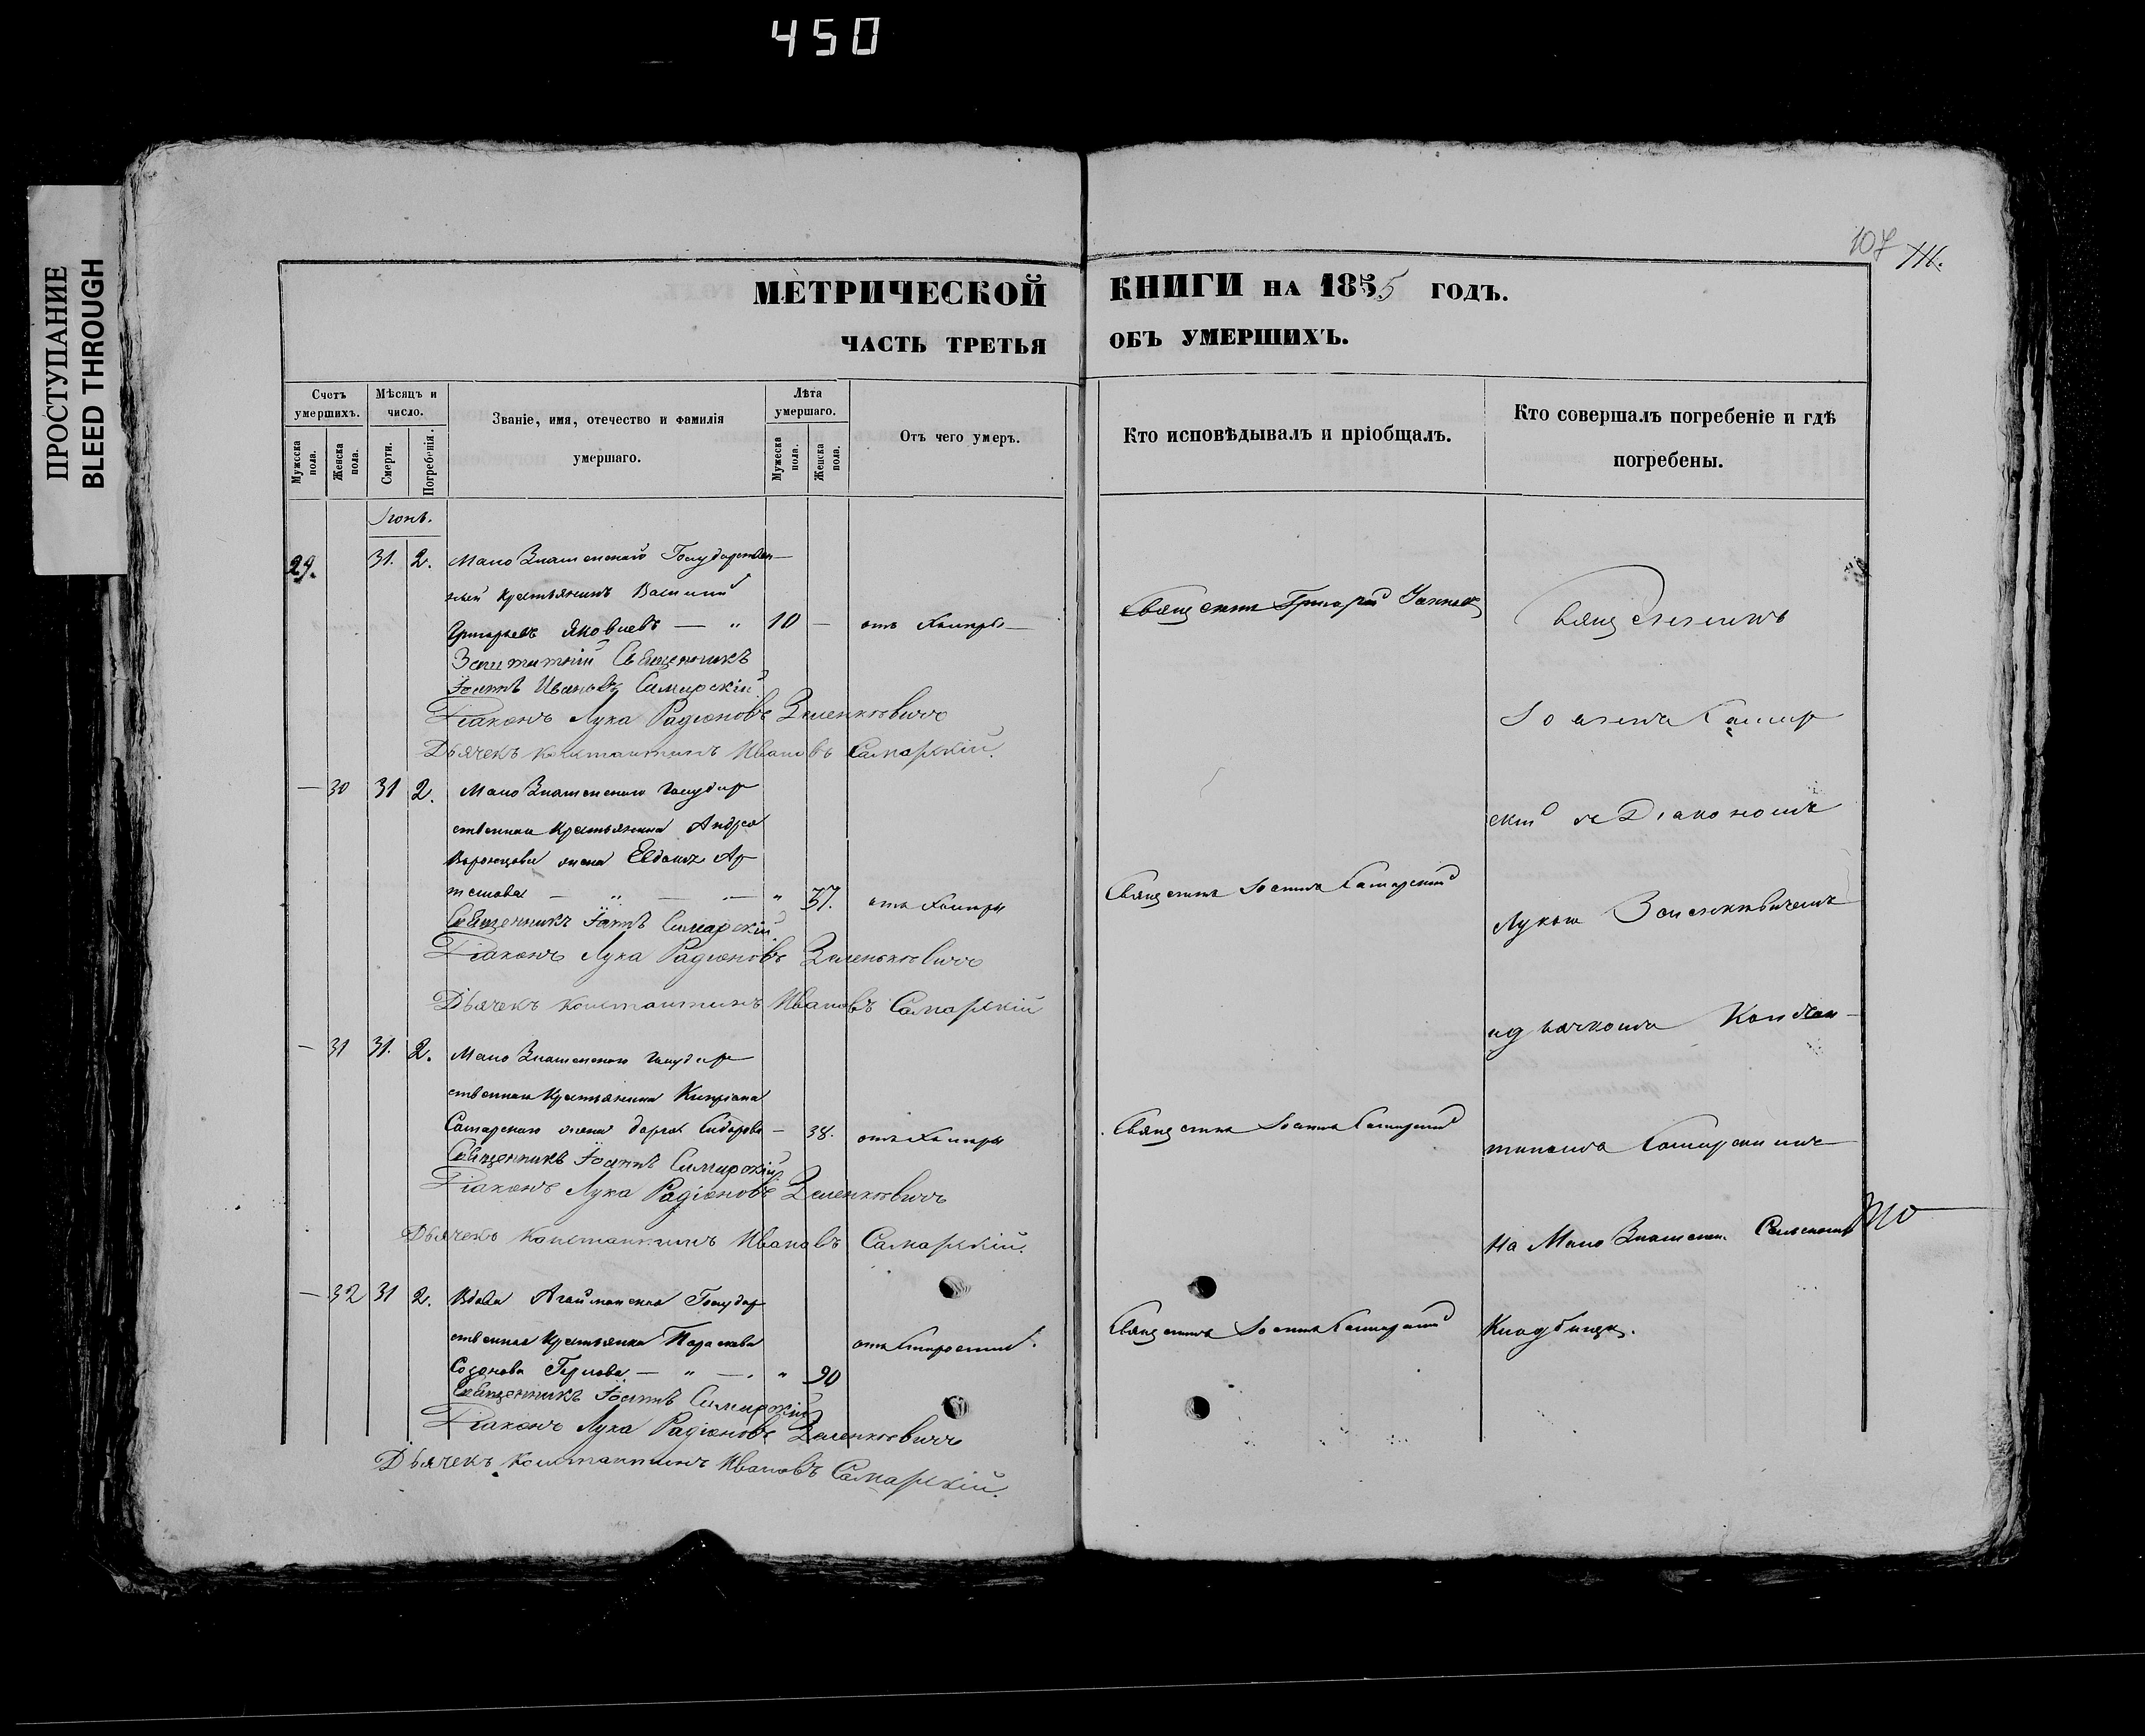 450
ПРОСТУПАНИЕ
BLEED THROUGH
107 116.
МЕТРИЧЕСКОЙ КНИГИ НА 1855 ГОДЪ.
ЧАСТЬ ТРЕТЬЯ ОБЪ УМЕРШИХЪ.
Счетъ умершихъ.
Мужеска пола.
Женска пола.
Мѣсяцъ и число.
Смерти.
Погребенія.
Званіе, имя, отечество и фамилія
умершаго.
Лѣта умершаго.
Мужеска пола.
Женска пола.
Отъ чего умеръ.
Кто исповѣдывалъ и пріобщалъ.
Кто совершалъ погребеніе и гдѣ
погребены.
Іюнь.
29. 31. 2. Мало Знаменскаго Государствен-
ный крестьянинъ Василий
Григорьевъ Яковлевъ — " 10 — отъ Холеры —
Священникъ Григорій
Священникъ
Заштатній Священникъ
Іоаннъ Ивановъ Самарскій
Діаконъ Лука Радіоновъ Зеленкевичъ
Іоаннъ Самар
Дьячекъ Константинъ Ивановъ Самарскій.
— 30 31 2. Мало Знаменскаго Государ
ственнаго крестьянина Андрея
скій съ Діакономъ
Воронцова жена Евдокія Ар
темова — " — " 37. отъ Холеры
Священникъ Іоаннъ Самарскій
Лукою Зеленкевичемъ
Священникъ Іоаннъ Самарскій
Діаконъ Лука Радіоновъ Зеленькевичъ
Дьячекъ Константинъ Ивановъ Самарскій
и дьячкомъ Констан-
— 31 31. 2. Мало Знаменскаго Государ
ственнаго Крестьянина Кипріана
Самарскаго жена Дарья Сидорова — 38. отъ Холеры
Священникъ Іоаннъ Самарскій
тиномъ Самарскимъ
Священникъ Іоаннъ Самарскій
Діаконъ Лука Радіоновъ Зеленкевичъ
Дьячекъ Константинъ Ивановъ Самарскій.
на Мало Знаменск. Сельскомъ
— 32 31 2. Вдова Агайманская Государ
ственная Крестьянка Параскева
отъ Старости.
Священникъ Іоаннъ Самарскій
Кладбищѣ.
Созонова — " — " 90
Священникъ Іоаннъ Самарскій
Діаконъ Лука Радіоновъ Зеленкевичъ
Дьячекъ Константинъ Ивановъ Самарскій.